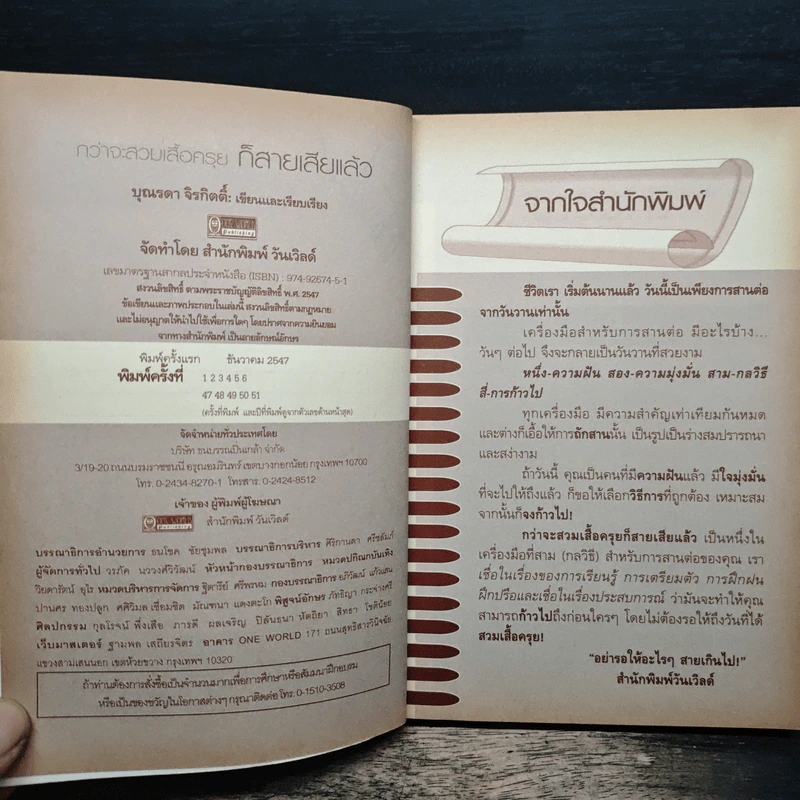 กว่าจะสวมเสื้อครุย ก็สายเสียแล้ว
บุณรดา จิรกิตติ์: เขียนและเรียบเรียง
จัดทำโดย สำนักพิมพ์ วันเวิลด์
เลขมาตรฐานสากลประจำหนังสือ (ISBN) : 974-92674-5-1
สงวนลิขสิทธิ์ ตามพระราชบัญญัติลิขสิทธิ์ พ.ศ. 2547
ข้อเขียนและภาพประกอบในเล่มนี้ สงวนลิขสิทธิ์ตามกฎหมาย
และไม่อนุญาตให้นำไปใช้เพื่อการใดๆ โดยปราศจากความยินยอม
จากทางสำนักพิมพ์ เป็นลายลักษณ์อักษร
พิมพ์ครั้งแรก ธันวาคม 2547
พิมพ์ครั้งที่ 1 2 3 4 5 6
47 48 49 50 51
(ครั้งที่พิมพ์ และปีที่พิมพ์ดูจากตัวเลขด้านหน้าสุด)
จัดจำหน่ายทั่วประเทศโดย
บริษัท ธนบรรณปิ่นเกล้า จำกัด
3/19-20 ถนนบรมราชชนนี อรุณอมรินทร์ เขตบางกอกน้อย กรุงเทพฯ 10700
โทร. 0-2434-8270-1 โทรสาร. 0-2424-8512
เจ้าของ ผู้พิมพ์ผู้โฆษณา
สำนักพิมพ์ วันเวิลด์
บรรณาธิการอำนวยการ ธนโชค ชัยชุมพล บรรณาธิการบริหาร ศิริกานลา ศรีชลัมภ์
ผู้จัดการทั่วไป วรภัค นววงศ์วิวัฒน์ หัวหน้ากองบรรณาธิการ หมวดปกิณกบันเทิง
วิยดารัตน์ อุไร หมวดบริหารการจัดการ ฐิตารีย์ ศรีพรหม กองบรรณาธิการ อภิวัฒน์ แก้วแสน
ปานศร ทองปลูก ศศิวิมล เชื่อมชิต มัณฑนา แดงตะโก พิสูจน์อักษร ภัทธิญา กระจ่างศรี
ศิลปกรรม กุลโรจน์ พึ่งเสือ ภารดี ผลเจริญ ปิลันธนา หัตถิยา สิทธา โชติน้อย
เว็บมาสเตอร์ ฐามพล เสถียรจิตร อาคาร ONE WORLD 171 ถนนสุทธิสารวินิจฉัย
แขวงสามเสนนอก เขตห้วยขวาง กรุงเทพฯ 10320
ถ้าท่านต้องการสั่งซื้อเป็นจำนวนมากเพื่อการศึกษาหรือสัมมนาฝึกอบรม
หรือเป็นของขวัญในโอกาสต่างๆ กรุณาติดต่อ โทร. 0-1510-3508
จากใจสำนักพิมพ์
ชีวิตเรา เริ่มต้นนานแล้ว วันนี้เป็นเพียงการสานต่อ
จากวันวานเท่านั้น
เครื่องมือสำหรับการสานต่อ มีอะไรบ้าง...
วันๆ ต่อไป จึงจะกลายเป็นวันวานที่สวยงาม
หนึ่ง-ความฝัน สอง-ความมุ่งมั่น สาม-กลวิธี
สี่-การก้าวไป
ทุกเครื่องมือ มีความสำคัญเท่าเทียมกันหมด
และต่างก็เอื้อให้การถักสานนั้น เป็นรูปเป็นร่างสมปรารถนา
และสง่างาม
ถ้าวันนี้ คุณเป็นคนที่มีความฝันแล้ว มีใจมุ่งมั่น
ที่จะไปให้ถึงแล้ว ก็ขอให้เลือกวิธีการที่ถูกต้อง เหมาะสม
จากนั้นก็จงก้าวไป!
กว่าจะสวมเสื้อครุยก็สายเสียแล้ว เป็นหนึ่งใน
เครื่องมือที่สาม (กลวิธี) สำหรับการสานต่อของคุณ เรา
เชื่อในเรื่องของการเรียนรู้ การเตรียมตัว การฝึกฝน
ฝึกปรือและเชื่อในเรื่องประสบการณ์ ว่ามันจะทำให้คุณ
สามารถก้าวไปถึงก่อนใครๆ โดยไม่ต้องรอให้ถึงวันที่ได้
สวมเสื้อครุย!
“อย่ารอให้อะไรๆ สายเกินไป!”
สำนักพิมพ์วันเวิลด์